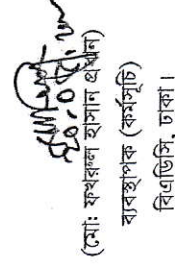 (মো: ফখরুল হাসান প্রধান)
ব্যবস্থাপক (কর্মসূচি)
বিএডিসি, ঢাকা।